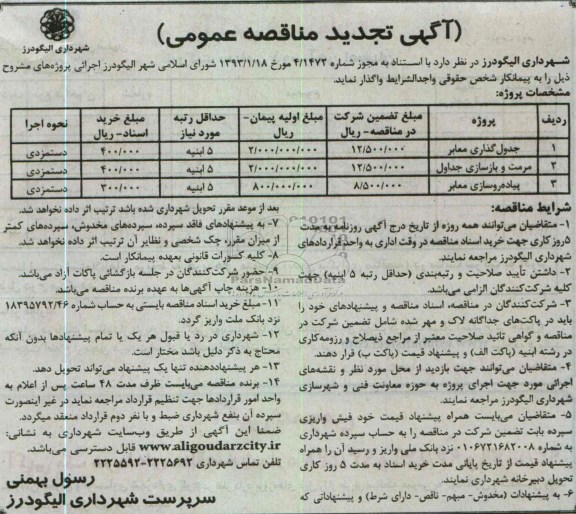 (آگهی تجدید مناقصه عمومی)
شهرداری الیگودرز
شهرداری الیگودرز در نظر دارد با استناد به مجوز شماره ۴/۱۴۷۳ مورخ ۱۳۹۳/۱/۱۸ شورای اسلامی شهر الیگودرز اجرائی پروژه‌های مشروح
ذیل را به پیمانکار شخص حقوقی واجدالشرایط واگذار نماید.
مشخصات پروژه:
ردیف پروژه مبلغ تضمین شرکت در مناقصه- ریال مبلغ اولیه پیمان- ریال حداقل رتبه مورد نیاز مبلغ خرید اسناد- ریال نحوه اجرا
۱ جدول‌گذاری معابر ۱۲/۵۰۰/۰۰۰ ۲/۰۰۰/۰۰۰/۰۰۰ ۵ ابنیه ۴۰۰/۰۰۰ دستمزدی
۲ مرمت و بازسازی جداول ۱۲/۵۰۰/۰۰۰ ۲/۰۰۰/۰۰۰/۰۰۰ ۵ ابنیه ۴۰۰/۰۰۰ دستمزدی
۳ پیاده‌روسازی معابر ۸/۵۰۰/۰۰۰ ۸۰۰/۰۰۰/۰۰۰ ۵ ابنیه ۳۰۰/۰۰۰ دستمزدی
شرایط مناقصه:
۱- متقاضیان می‌توانند همه روزه از تاریخ درج آگهی روزنامه به مدت
۵ روز کاری جهت خرید اسناد مناقصه در وقت اداری به واحد قراردادهای
شهرداری الیگودرز مراجعه نمایند.
۲- داشتن تأیید صلاحیت و رتبه‌بندی (حداقل رتبه ۵ ابنیه) جهت
کلیه شرکت‌کنندگان الزامی می‌باشد.
۳- شرکت‌کنندگان در مناقصه، اسناد مناقصه و پیشنهادهای خود را
باید در پاکت‌های جداگانه لاک و مهر شده شامل تضمین شرکت در
مناقصه و گواهی تائید صلاحیت معتبر از مراجع ذیصلاح و رزومه‌کاری
در رشته ابنیه (پاکت الف) و پیشنهاد قیمت (پاکت ب) قرار دهند.
۴- متقاضیان می‌توانند جهت بازدید از محل مورد نظر و نقشه‌های
اجرائی مورد جهت اجرای پروژه به حوزه معاونت فنی و شهرسازی
شهرداری الیگودرز مراجعه نمایند.
۵- متقاضیان می‌بایست همراه پیشنهاد قیمت خود فیش واریزی
سپرده بابت تضمین شرکت در مناقصه را به حساب سپرده شهرداری
به شماره ۰۱۰۶۷۲۱۶۸۲۰۰۸ نزد بانک ملی واریز و رسید آن را همراه
پیشنهاد قیمت از تاریخ پایانی مدت خرید اسناد به مدت ۵ روز کاری
تحویل دبیرخانه شهرداری نمایند.
۶- به پیشنهادات (مخدوش- مبهم- ناقص- دارای شرط) و پیشنهاداتی که
بعد از موعد مقرر تحویل شهرداری شده باشد ترتیب اثر داده نخواهد شد.
۷- به پیشنهادهای فاقد سپرده، سپرده‌های مخدوش، سپرده‌های کمتر
از میزان مقرر، چک شخصی و نظایر آن ترتیب اثر داده نخواهد شد.
۸- کلیه کسورات قانونی بعهده پیمانکار است.
۹- حضور شرکت‌کنندگان در جلسه بازگشائی پاکات آزاد می‌باشد.
۱۰- هزینه چاپ آگهی‌ها به عهده برنده مناقصه می‌باشد.
۱۱- مبلغ خرید اسناد مناقصه بایستی به حساب شماره ۱۸۳۹۵۷۹۲/۴۶
نزد بانک ملت واریز گردد.
۱۲- شهرداری در رد یا قبول هر یک یا تمام پیشنهادها بدون آنکه
محتاج به ذکر دلیل باشد مختار است.
۱۳- هر پیشنهاددهنده تنها یک پیشنهاد می‌تواند تحویل دهد.
۱۴- برنده مناقصه می‌بایست ظرف مدت ۴۸ ساعت پس از اعلام به
واحد امور قراردادها جهت تنظیم قرارداد مراجعه نماید در غیر اینصورت
سپرده آن بنفع شهرداری ضبط و با نفر دوم قرارداد منعقد میگردد.
ضمنا این آگهی از طریق وب‌سایت شهرداری به نشانی:
www.aligoudarzcity.ir قابل دسترسی می‌باشد.
تلفن تماس شهرداری ۲۲۲۵۶۹۲-۲۲۲۵۵۹۲
رسول بهمنی
سرپرست شهرداری الیگودرز
ParsNamadData